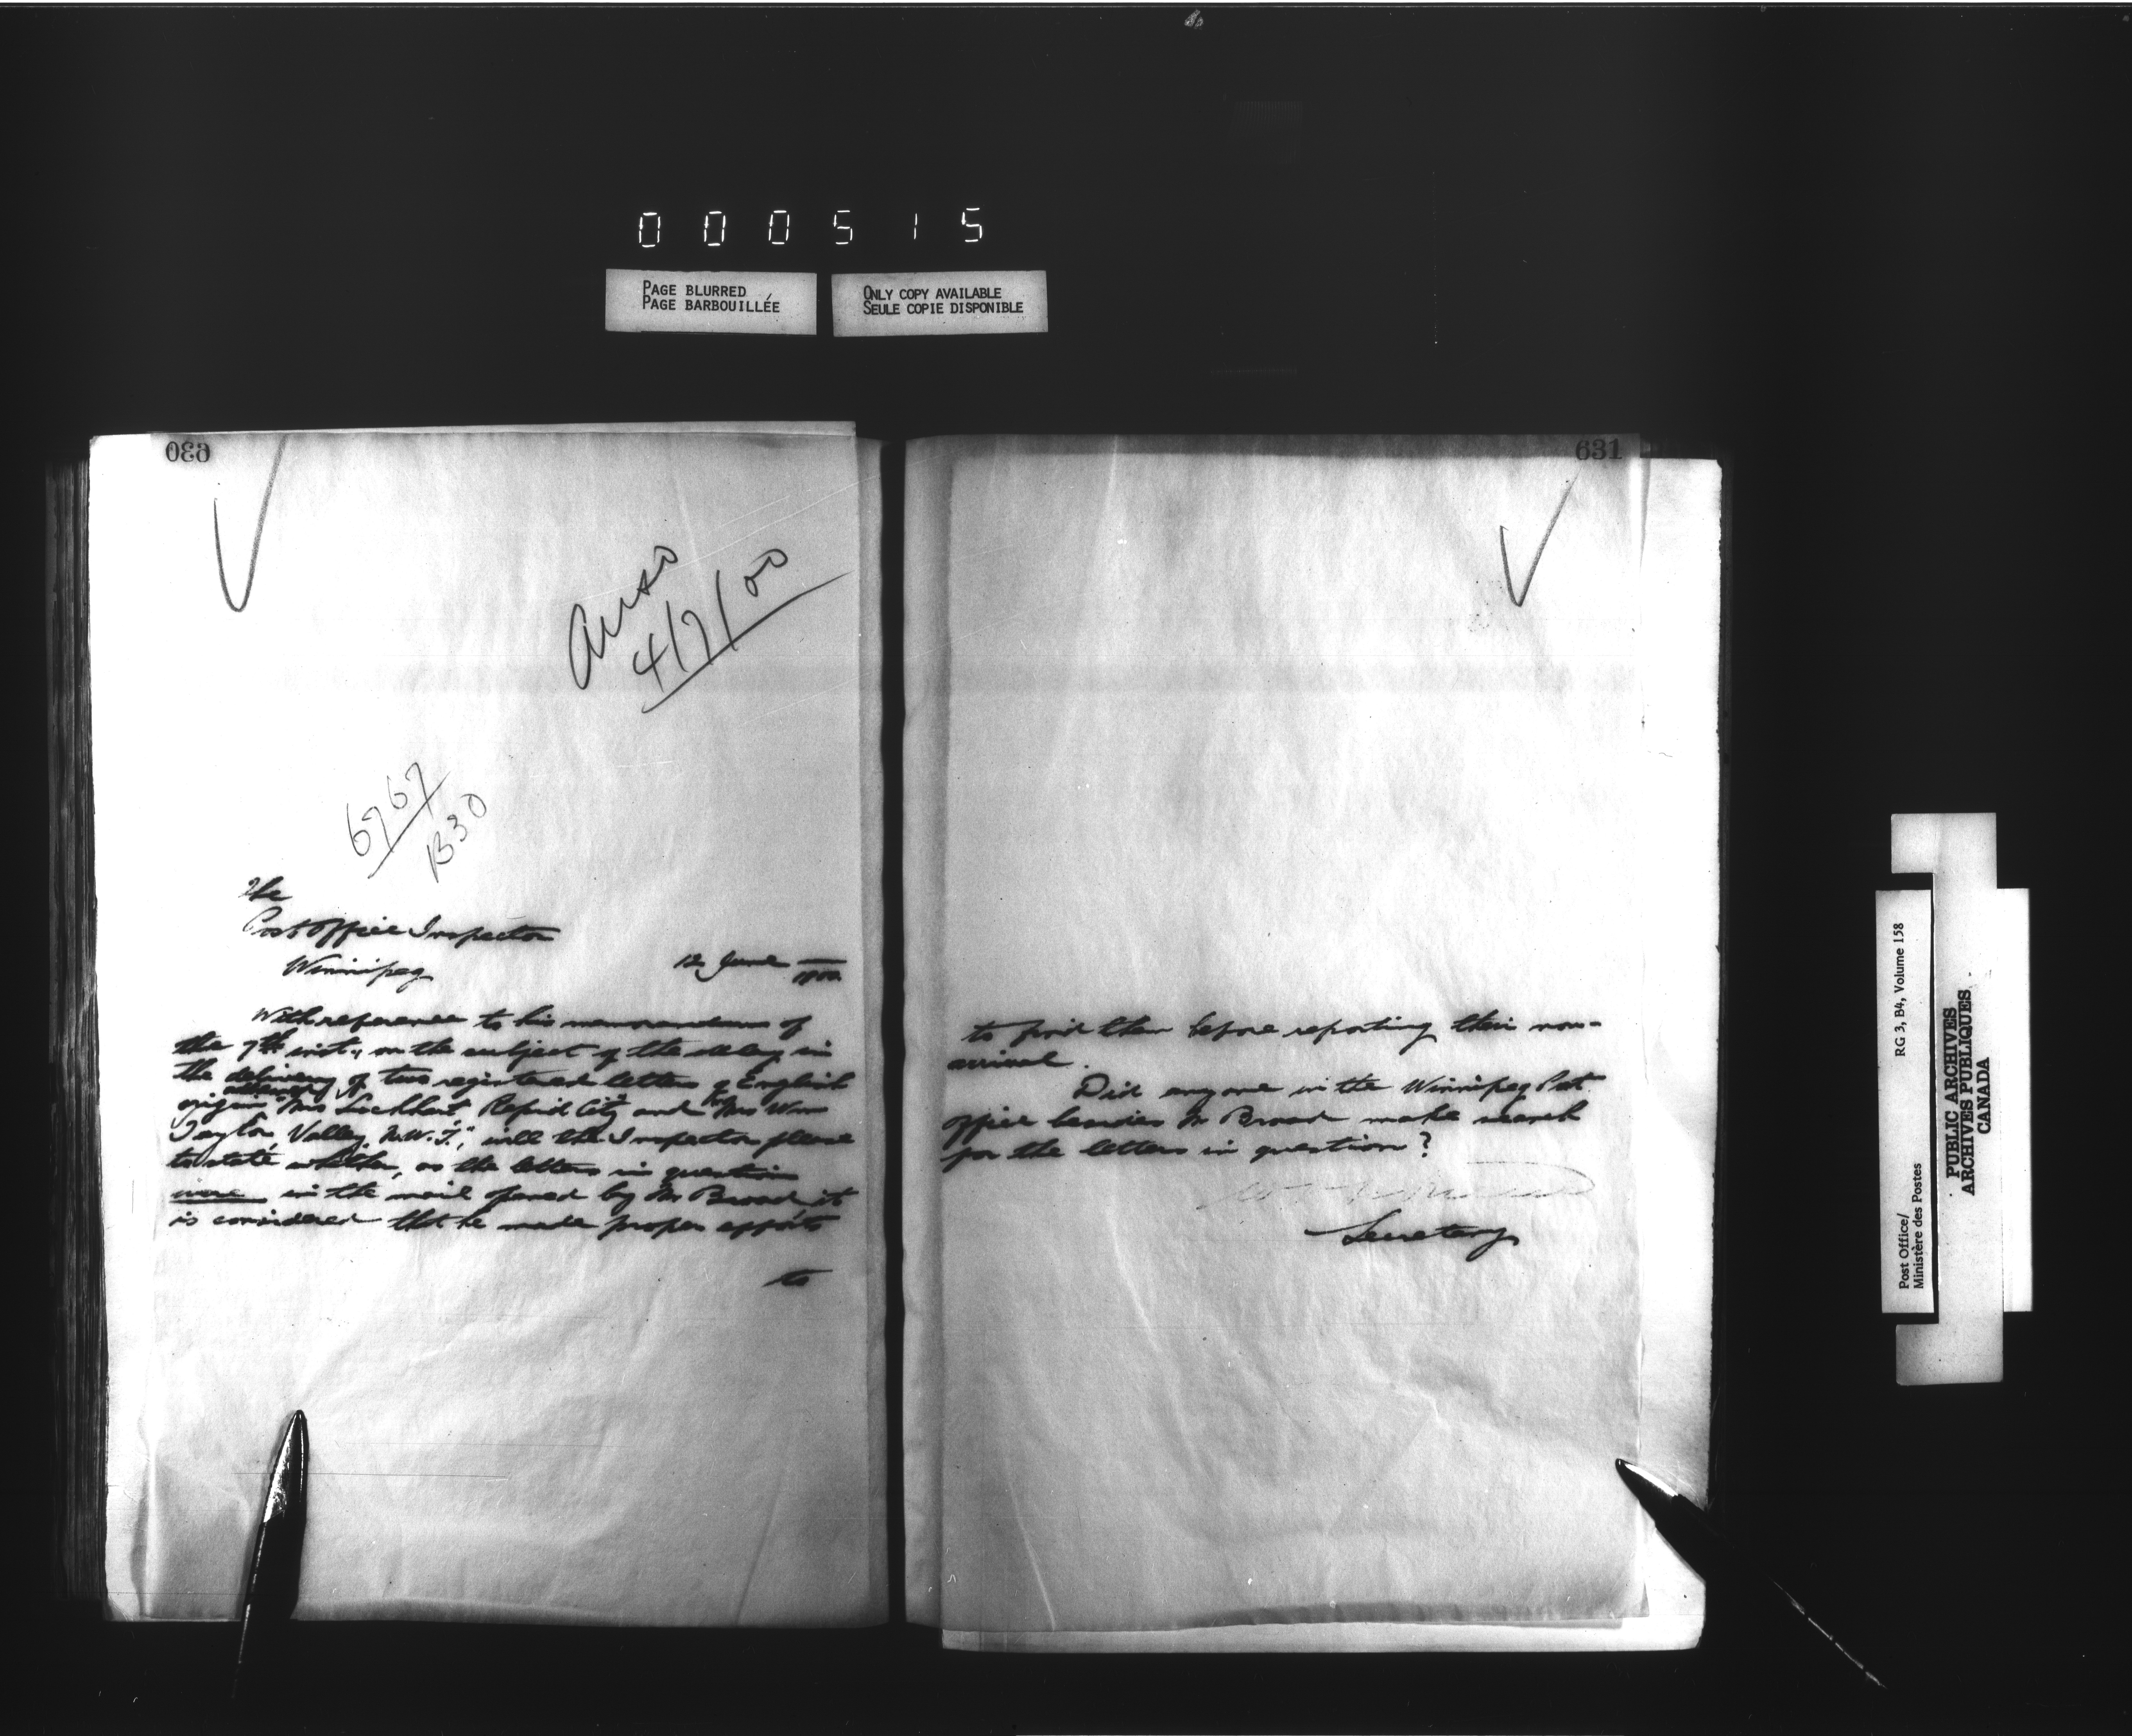 000515
PAGE BLURRED
PAGE BARBOUILLÉE
ONLY COPY AVAILABLE
SEULE COPIE DISPONIBLE
630
Ansd
4/7/00
6767
B30
The
Post Office Inspector
Winnipeg
12 June 1900
With reference to his memorandum of
the 7th inst., on the subject of the delay in
the delivery of two registered letters of English
origin addressed "Mrs Lockhart Rapid City" and "Mrs Wm
Taylor, Valley, N.W.T.," will the Inspector please
to state whether, as the letters in question
were in the mail opened by Mr Broad, it
is considered that he made proper efforts
to
631
to find them before reporting their non-
arrival.
Did anyone in the Winnipeg Post
Office besides Mr Broad make search
for the letters in question?
Secretary
Post Office/
Ministère des Postes
RG 3, B4, Volume 158
PUBLIC ARCHIVES
ARCHIVES PUBLIQUES
CANADA